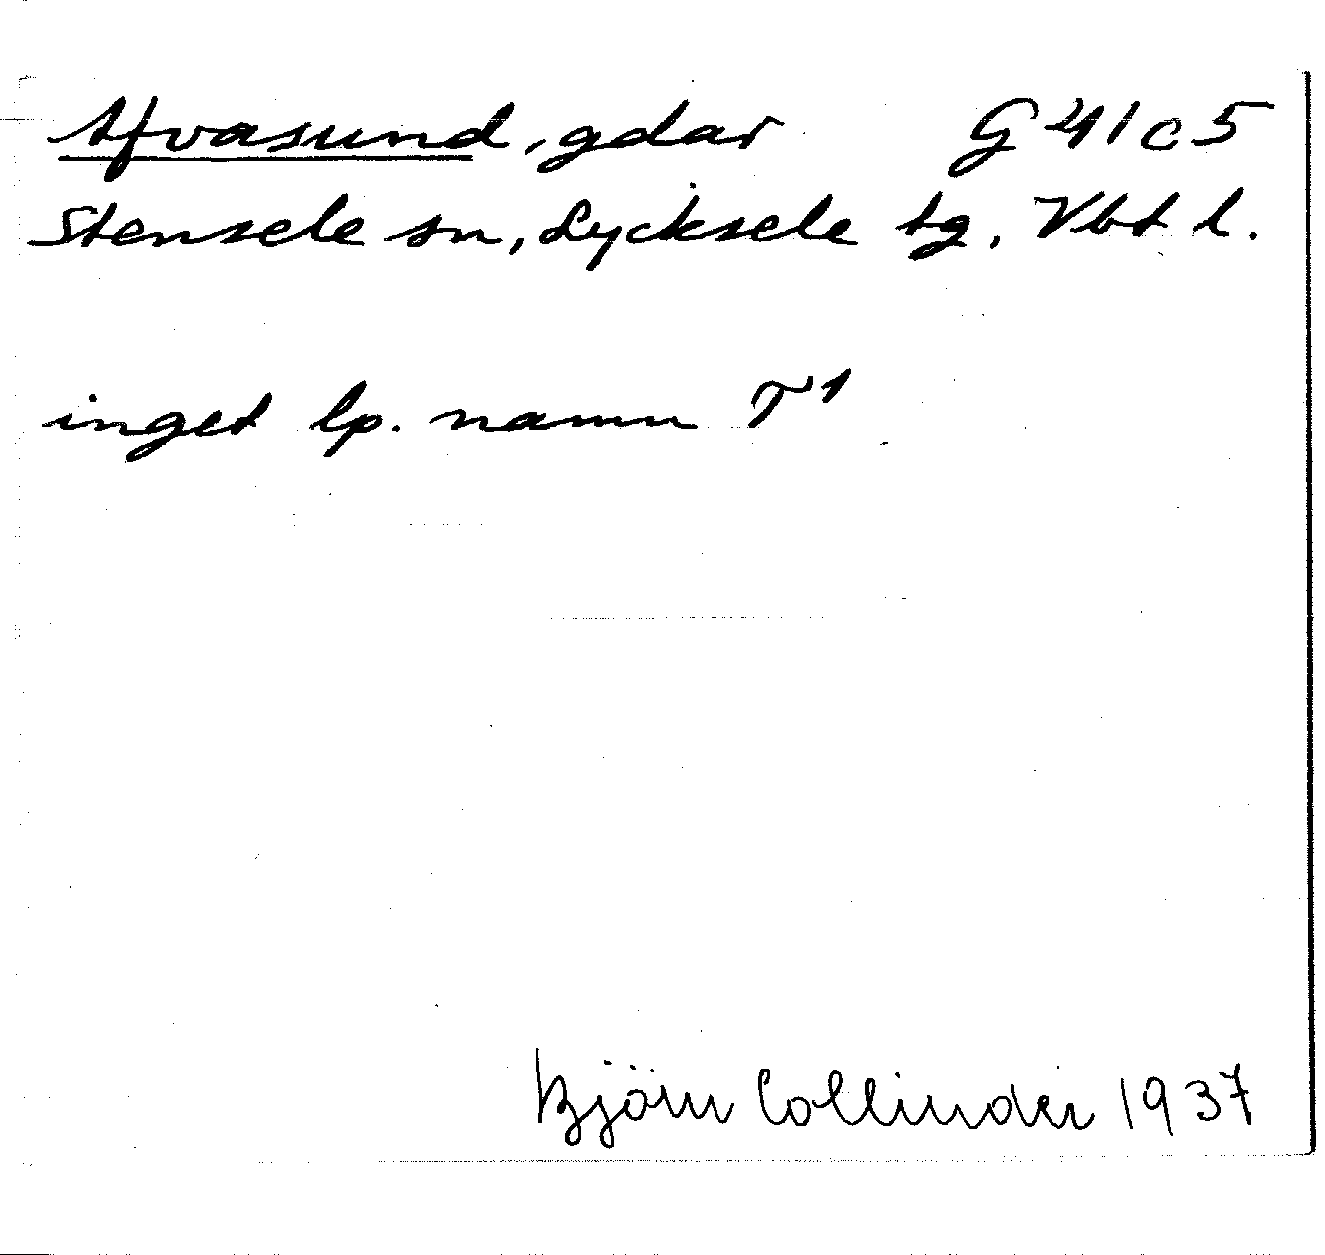 Afvasund, gdar G 41 c 5
Stensele sn, Lycksele tg, Vbt l.
inget lp. namn T¹
Björn Collinder 1937